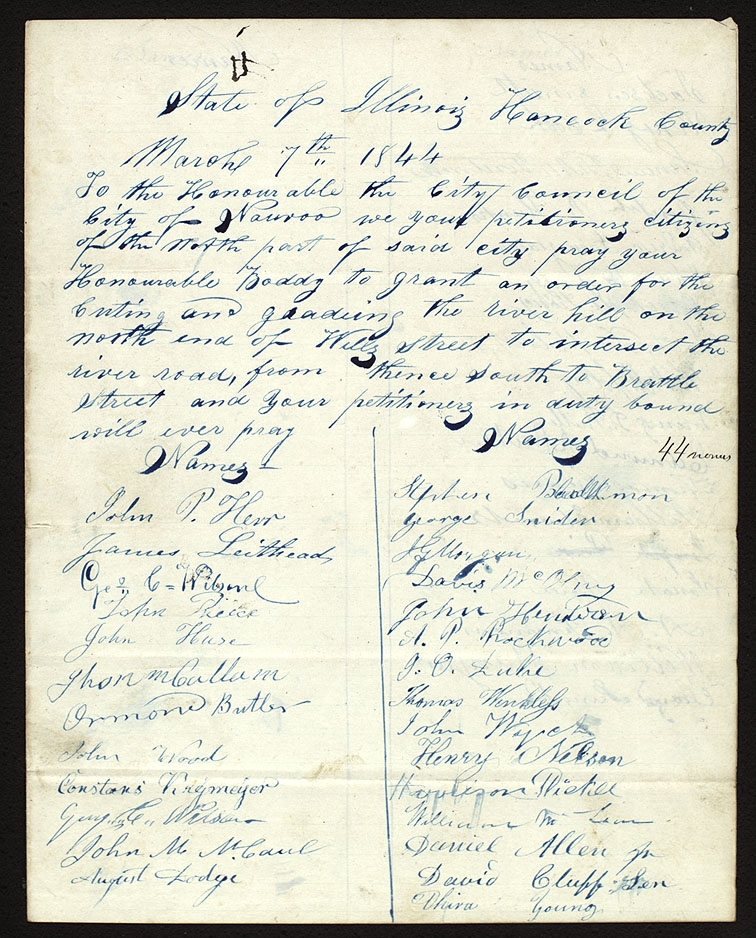 State of Illinois Hancock County
March 7th 1844
To the Honourable the City Council of the
City of Nauvoo we your petitioners citizens
of the North part of said city pray your
Honourable Boddy to grant an order for the
Cuting and gradeing the river hill on the
north end of Wells street to intersect the
river road, from thence South to Brattle
Street and your petitioners in duty bound
will ever pray
Names
John P. Herr
James Leithead
Geo C = Wilson
John Reice
John Huse
Jhon mCallam
Ormond Butler
John Wood
Constans Virgmeyer
C. Wilson
John M McCaul
August Dodge
Names 44 names
Stphen
George Snider
Morgan
Davis
John
A. P. Rockwood
J. O. Duke
Thomas Winkless
John
Henry Nelson
William Mc
Daniel Allen Jr
David Clupp Sen
Young